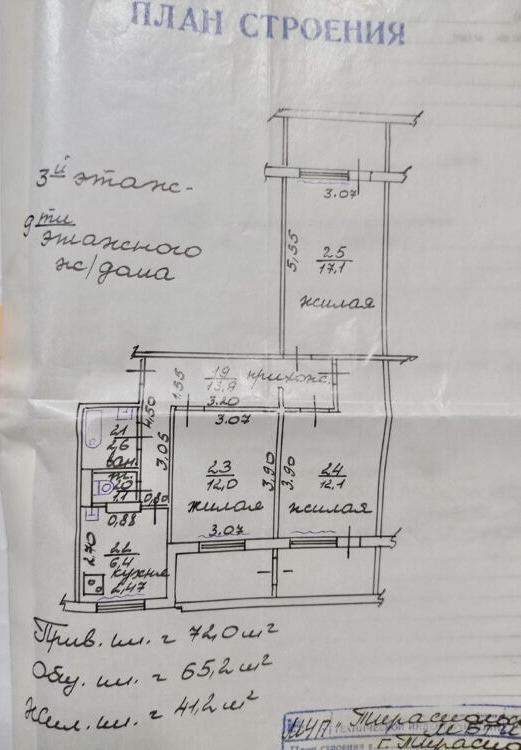 ПЛАН СТРОЕНИЯ
3й этаж-
9ти
этажного
ж/дома
3.07
5,55
25
17,1
жилая
1.55
19
13,9
прихож.
3.20
3.07
4,50
3,05
21
2,6
ван.
20
1.1
0,88
23
12,0
жилая
3.07
3,90
3,90
24
12,1
жилая
2,70
22
6,4
кухня
2,47
Прив. пл. = 72,0 м²
Общ. пл. = 65,2 м²
Жил. пл. = 41,2 м²
МУП "Тираспольс
План строения
г. Тирасп